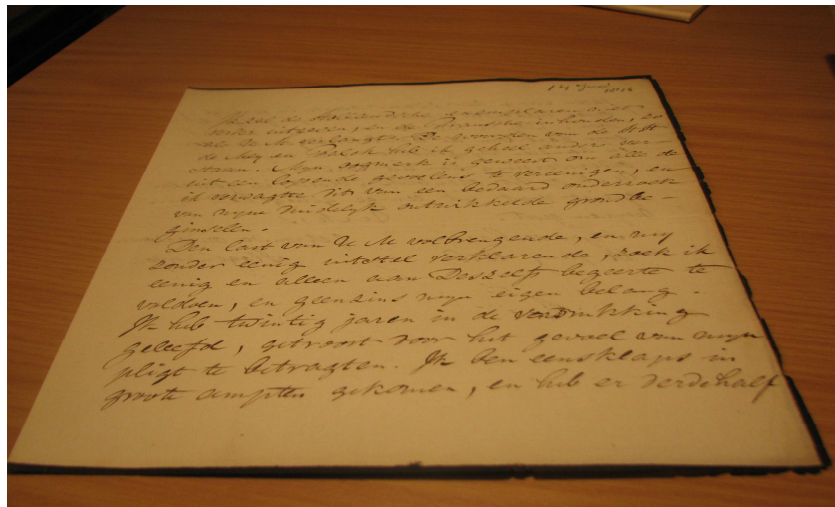 14 Juni
1816
Ik zal de Hollandsche exemplaren niet
onder uitgeven, en de Fransche inhouden, zo
als U M verlangt. De gronden van de HH
de Mey en Falck heb ik geheel anders ver-
staan. Myn oogmerk is geweest om alle de
uit een lopende gevoelens te vereenigen, en
ik verwagtte dit van een bedaard onderzoek
van myne duidelyk ontwikkelde grondbe-
ginselen.
Den last van U M volbrengende, en my
zonder eenig uitstel verklarende, zoek ik
eenig en alleen aan Deszelfs begeerte te
voldoen, en geenzins myn eigen belang.
Ik heb twintig jaren in de verdrukking
geleefd, getroost door het gevoel van myn
pligt te betragten. Ik ben eensklaps in
groote ampten gekomen, en heb er derdehalf